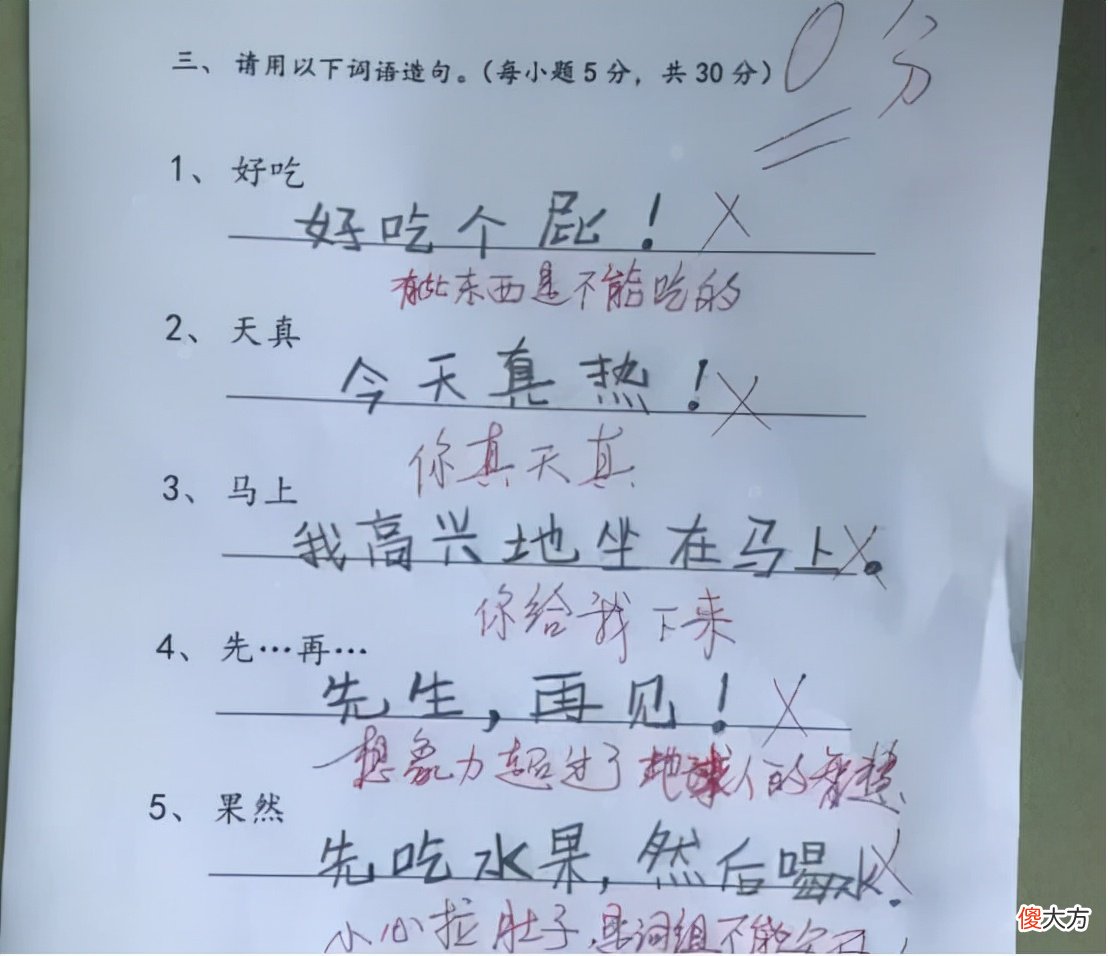 三、请用以下词语造句。(每小题5分，共30分)
0分
1、好吃
好吃个屁！
有些东西是不能吃的
2、天真
今天真热！
你真天真
3、马上
我高兴地坐在马上.
你给我下来
4、先…再…
先生，再见！
想象力超过了地球人的智慧
5、果然
先吃水果，然后喝水.
小心拉肚子，是词组不能分开！
傻大方